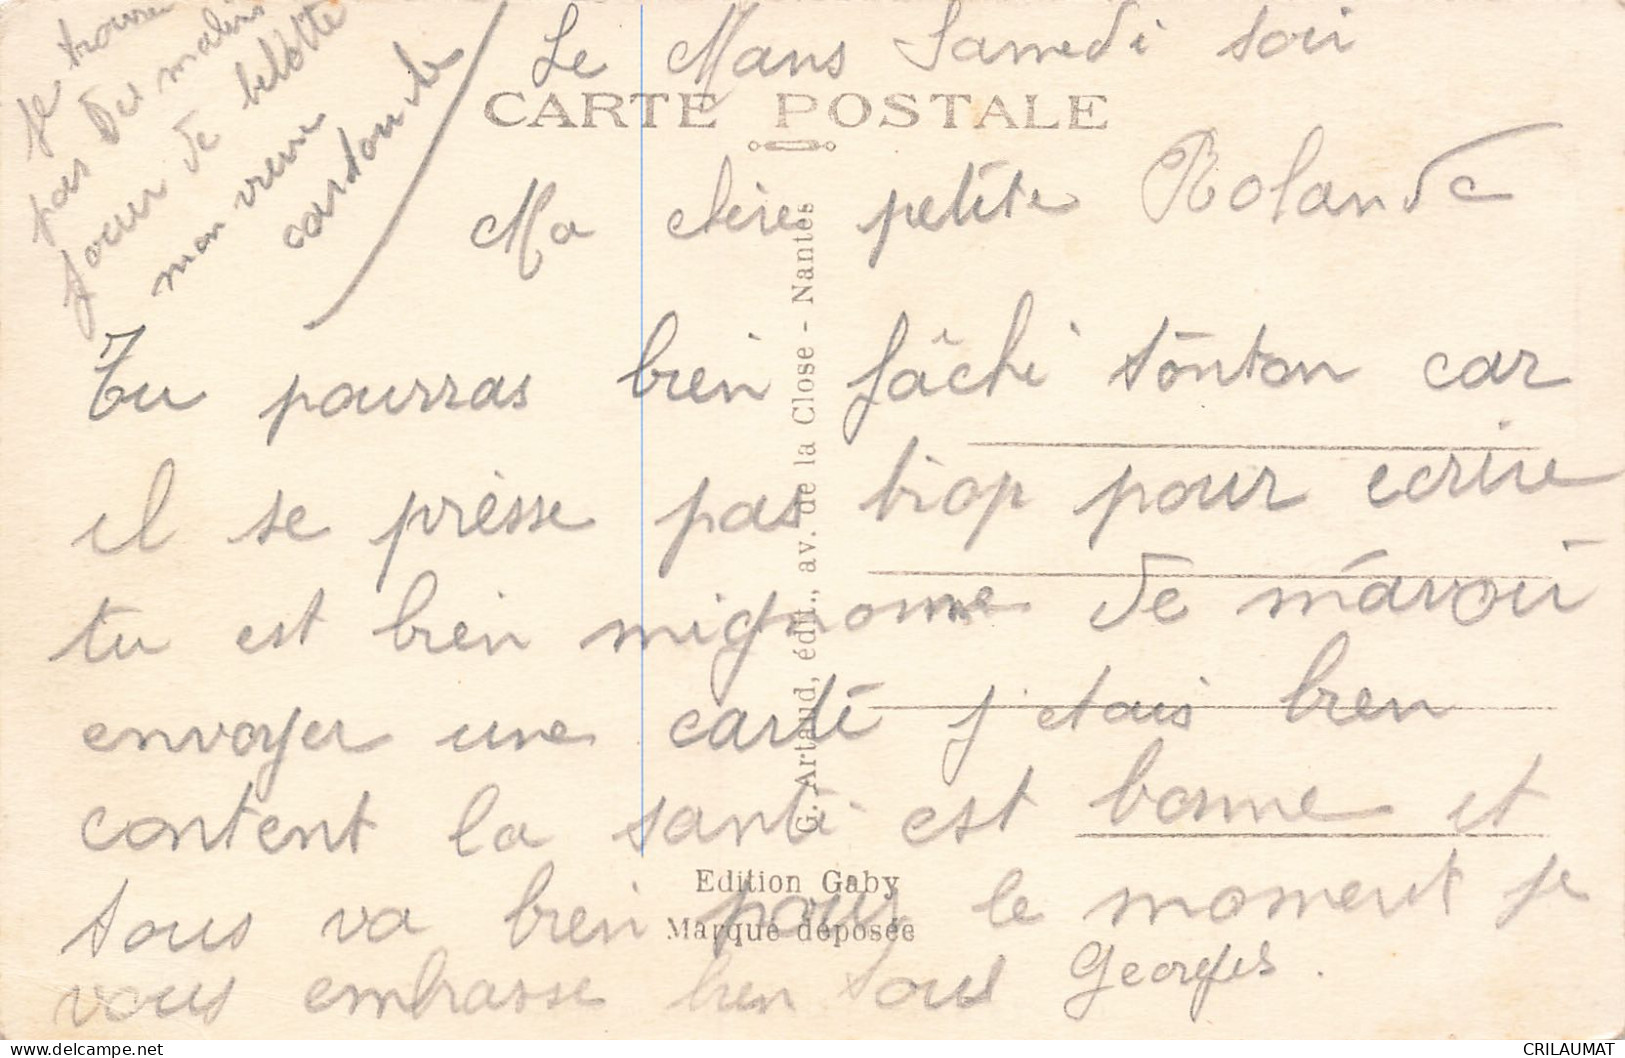 je trouve
pas des malins
jouer de belotte
mon vieux
Le Mans Samedi soir
CARTE POSTALE
Ma chère petite Rolande
Tu pourras bien fâché tonton car
il se prèsse pas trop pour ecrire
tu est bien mignonne de m'avoir
envoyer une carte j'etais bien
content la santé est bonne et
tous va bien pour le moment je
vous embrasse bien tous Georges.
G. Artaud, édit., av. de la Close - Nantes
Edition Gaby
Marque déposée
CRILAUMAT